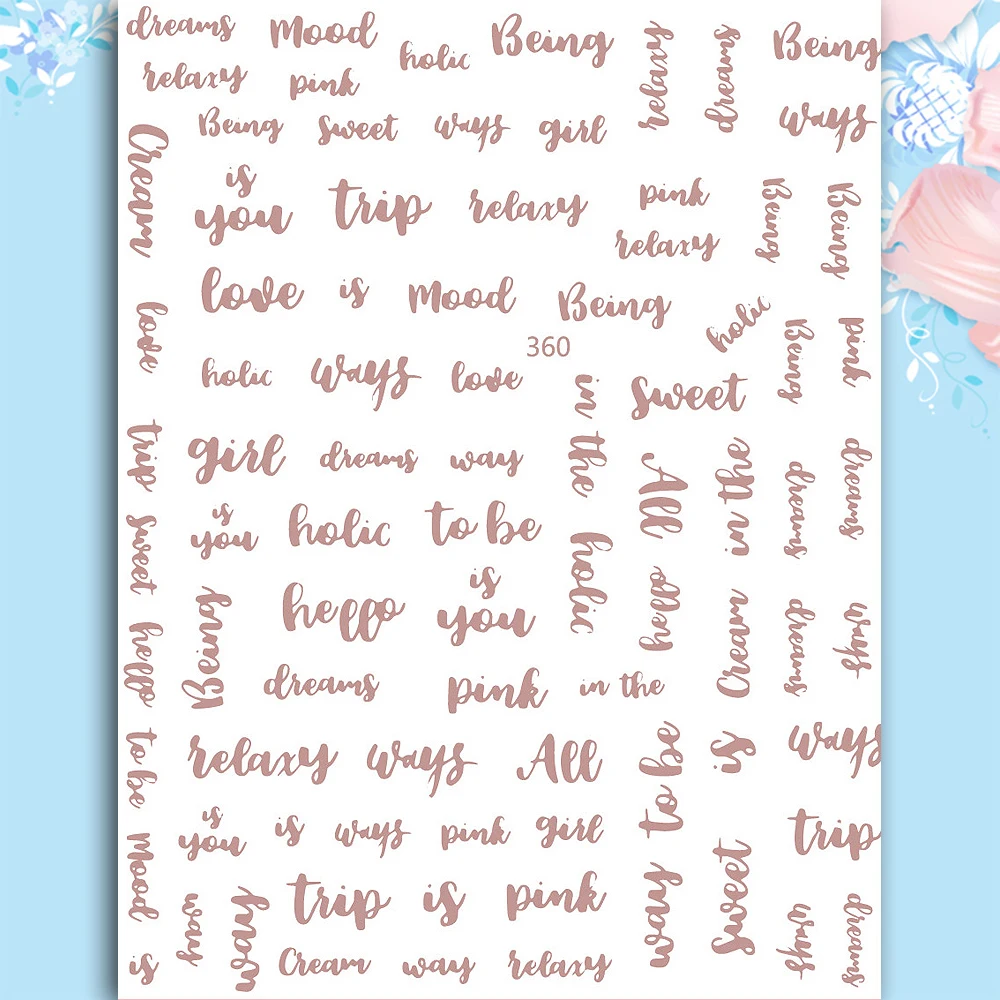 dreams
Mood
holic
Being
relaxy
dreams
Being
relaxy
pink
Being
sweet
ways
girl
ways
Cream
is
you
trip
relaxy
pink
relaxy
Being
Being
love
is
Mood
Being
holic
love
360
Being
pink
holic
ways
love
in the
sweet
trip
girl
dreams
way
All
in the
dreams
dreams
sweet
is
you
holic
to be
holic
hello
Being
hello
is
you
hello
Cream
dreams
ways
dreams
pink
in the
to be
relaxy
ways
All
way to be
is
ways
is
you
is
ways
pink
girl
sweet
trip
Mood
way
way
trip
is
pink
ways
dreams
is
Cream
way
relaxy